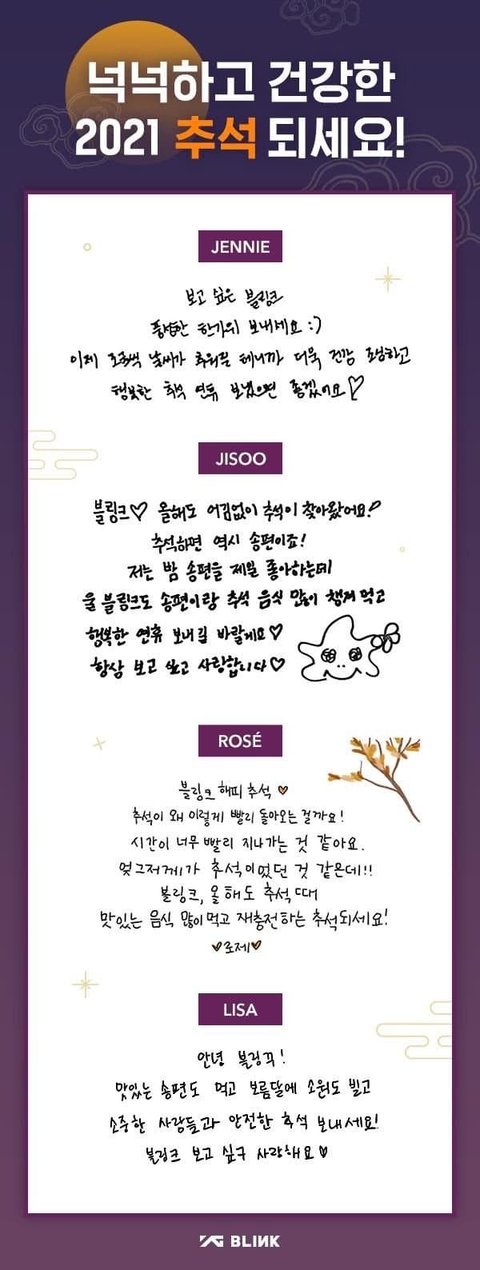 넉넉하고 건강한
2021 추석 되세요!
JENNIE
보고 싶은 블링크
풍성한 한가위 보내세요 :)
이제 조금씩 날씨가 추워질 테니까 더욱 건강 조심하고
행복한 추석 연휴 보냈으면 좋겠어요♡
JISOO
블링크♡ 올해도 어김없이 추석이 찾아왔어요!
추석하면 역시 송편이죠!
저는 밤 송편을 제일 좋아하는데
울 블링크도 송편이랑 추석 음식 많이 챙겨 먹고
행복한 연휴 보내길 바랄게요♡
항상 보고 싶고 사랑합니다♡
ROSÉ
블링크 해피 추석 ♡
추석이 왜 이렇게 빨리 돌아오는 걸까요!
시간이 너무 빨리 지나가는 것 같아요.
엊그저께가 추석이었던 것 같은데!!
블링크, 올해도 추석 때
맛있는 음식 많이 먹고 재충전하는 추석되세요!
♡로제♡
LISA
안녕 블링꾸!
맛있는 송편도 먹고 보름달에 소원도 빌고
소중한 사람들과 안전한 추석 보내세요!
블링크 보고 싶구 사랑해요♡
YG BLINK